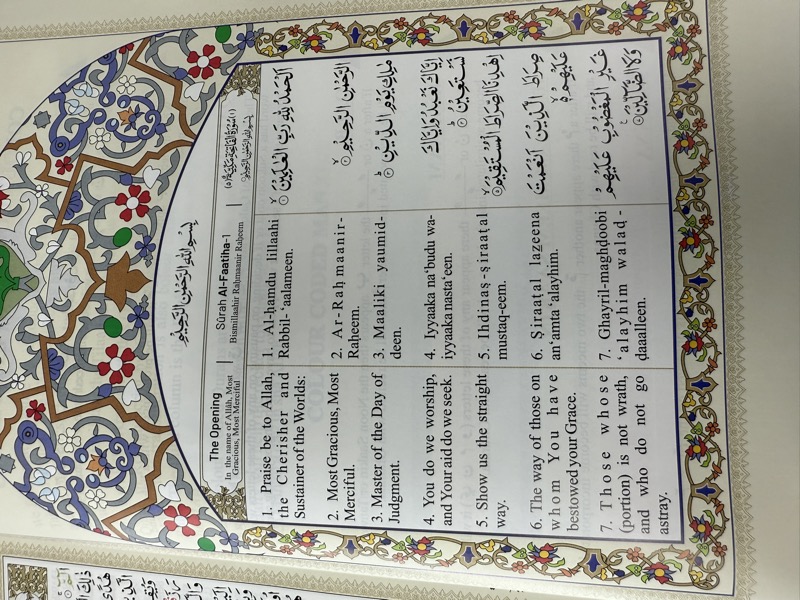 بِسْمِ اللهِ الرَّحْمٰنِ الرَّحِيْمِ
The Opening
In the name of Allâh, Most
Gracious, Most Merciful
Sûrah Al-Faatiha-1
Bismillaahir Raḥmaanir Raḥeem
بِسْمِ اللهِ الرَّحْمٰنِ الرَّحِيْمِ
1. Praise be to Allah,
the Cherisher and
Sustainer of the Worlds:
1. Al-ḥamdu lillaahi
Rabbil-‘aalameen.
اَلْحَمْدُ لِلّٰهِ رَبِّ الْعٰلَمِيْنَ
2. Most Gracious, Most
Merciful.
2. Ar-Raḥmaanir-
Raḥeem.
الرَّحْمٰنِ الرَّحِيْمِ
3. Master of the Day of
Judgment.
3. Maaliki yaumid-
deen.
مٰلِكِ يَوْمِ الدِّيْنِ
4. You do we worship,
and Your aid do we seek.
4. Iyyaaka na‘budu wa-
iyyaaka nasta‘een.
اِيَّاكَ نَعْبُدُ وَاِيَّاكَ
نَسْتَعِيْنُ
5. Show us the straight
way.
5. Ihdinaṣ-ṣiraaṭal
mustaq-eem.
اِهْدِنَا الصِّرَاطَ الْمُسْتَقِيْمَ
6. The way of those on
whom You have
bestowed your Grace.
6. Ṣiraaṭal lazeena
an‘amta ‘alayhim.
صِرَاطَ الَّذِيْنَ اَنْعَمْتَ
عَلَيْهِمْ
7. Those whose
(portion) is not wrath,
and who do not go
astray.
7. Ghayril-maghḍoobi
‘alayhim walaḍ-
ḍaaalleen.
غَيْرِ الْمَغْضُوْبِ عَلَيْهِمْ
وَلَا الضَّآلِّيْنَ